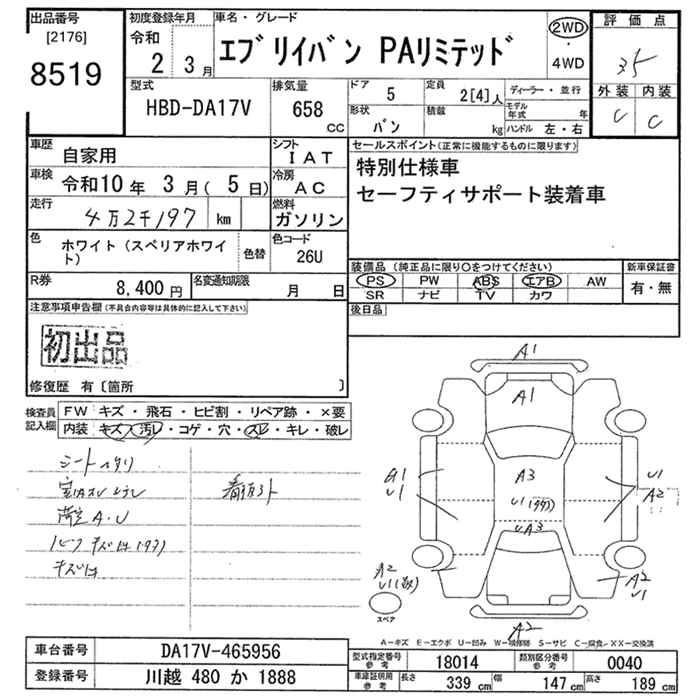 出品番号
[2176]
8519
初度登録年月
令和
2 3月
車名・グレード
エブリイバン PAリミテッド
2WD
・
4WD
評価点
3.5
外装 内装
C C
型式
HBD-DA17V
排気量
658
cc
ドア
5
定員
2[4]人
形状
バン
積載
kg
ディーラー・並行
モデル年式 年
ハンドル 左・右
車歴
自家用
シフト
IAT
車検
令和10年 3月(5日)
冷房
AC
走行
4万2千197 km
燃料
ガソリン
色
ホワイト(スペリアホワイト)
色替
色コード
26U
R券
8,400円
名変通知期限
月 日
セールスポイント(正常に機能するものに限ります)
特別仕様車
セーフティサポート装着車
装備品(純正品に限り○をつけてください)
PS PW ABS エアB AW
SR ナビ TV カワ
新車保証書
有・無
後日品
注意事項申告欄(不具合内容等は具体的に記入して下さい)
初出品
修復歴 有〔箇所 〕
検査員記入欄
FW キズ・飛石・ヒビ割・リペア跡・×要
内装 キズ・汚レ・コゲ・穴・スレ・キレ・破レ
A1
A1
A3
U1
UA3
G1
U1
U1
A2
A2
U1
A2
U1
A2
スペア
A-キズ E-エクボ U-凹み W-補修跡 S-サビ C-腐食 XX-交換済
車台番号
DA17V-465956
登録番号
川越 480 か 1888
型式指定番号
参考
18014
類別区分番号
参考
0040
車庫証明用
参考
長さ 339cm 幅 147cm 高さ 189cm